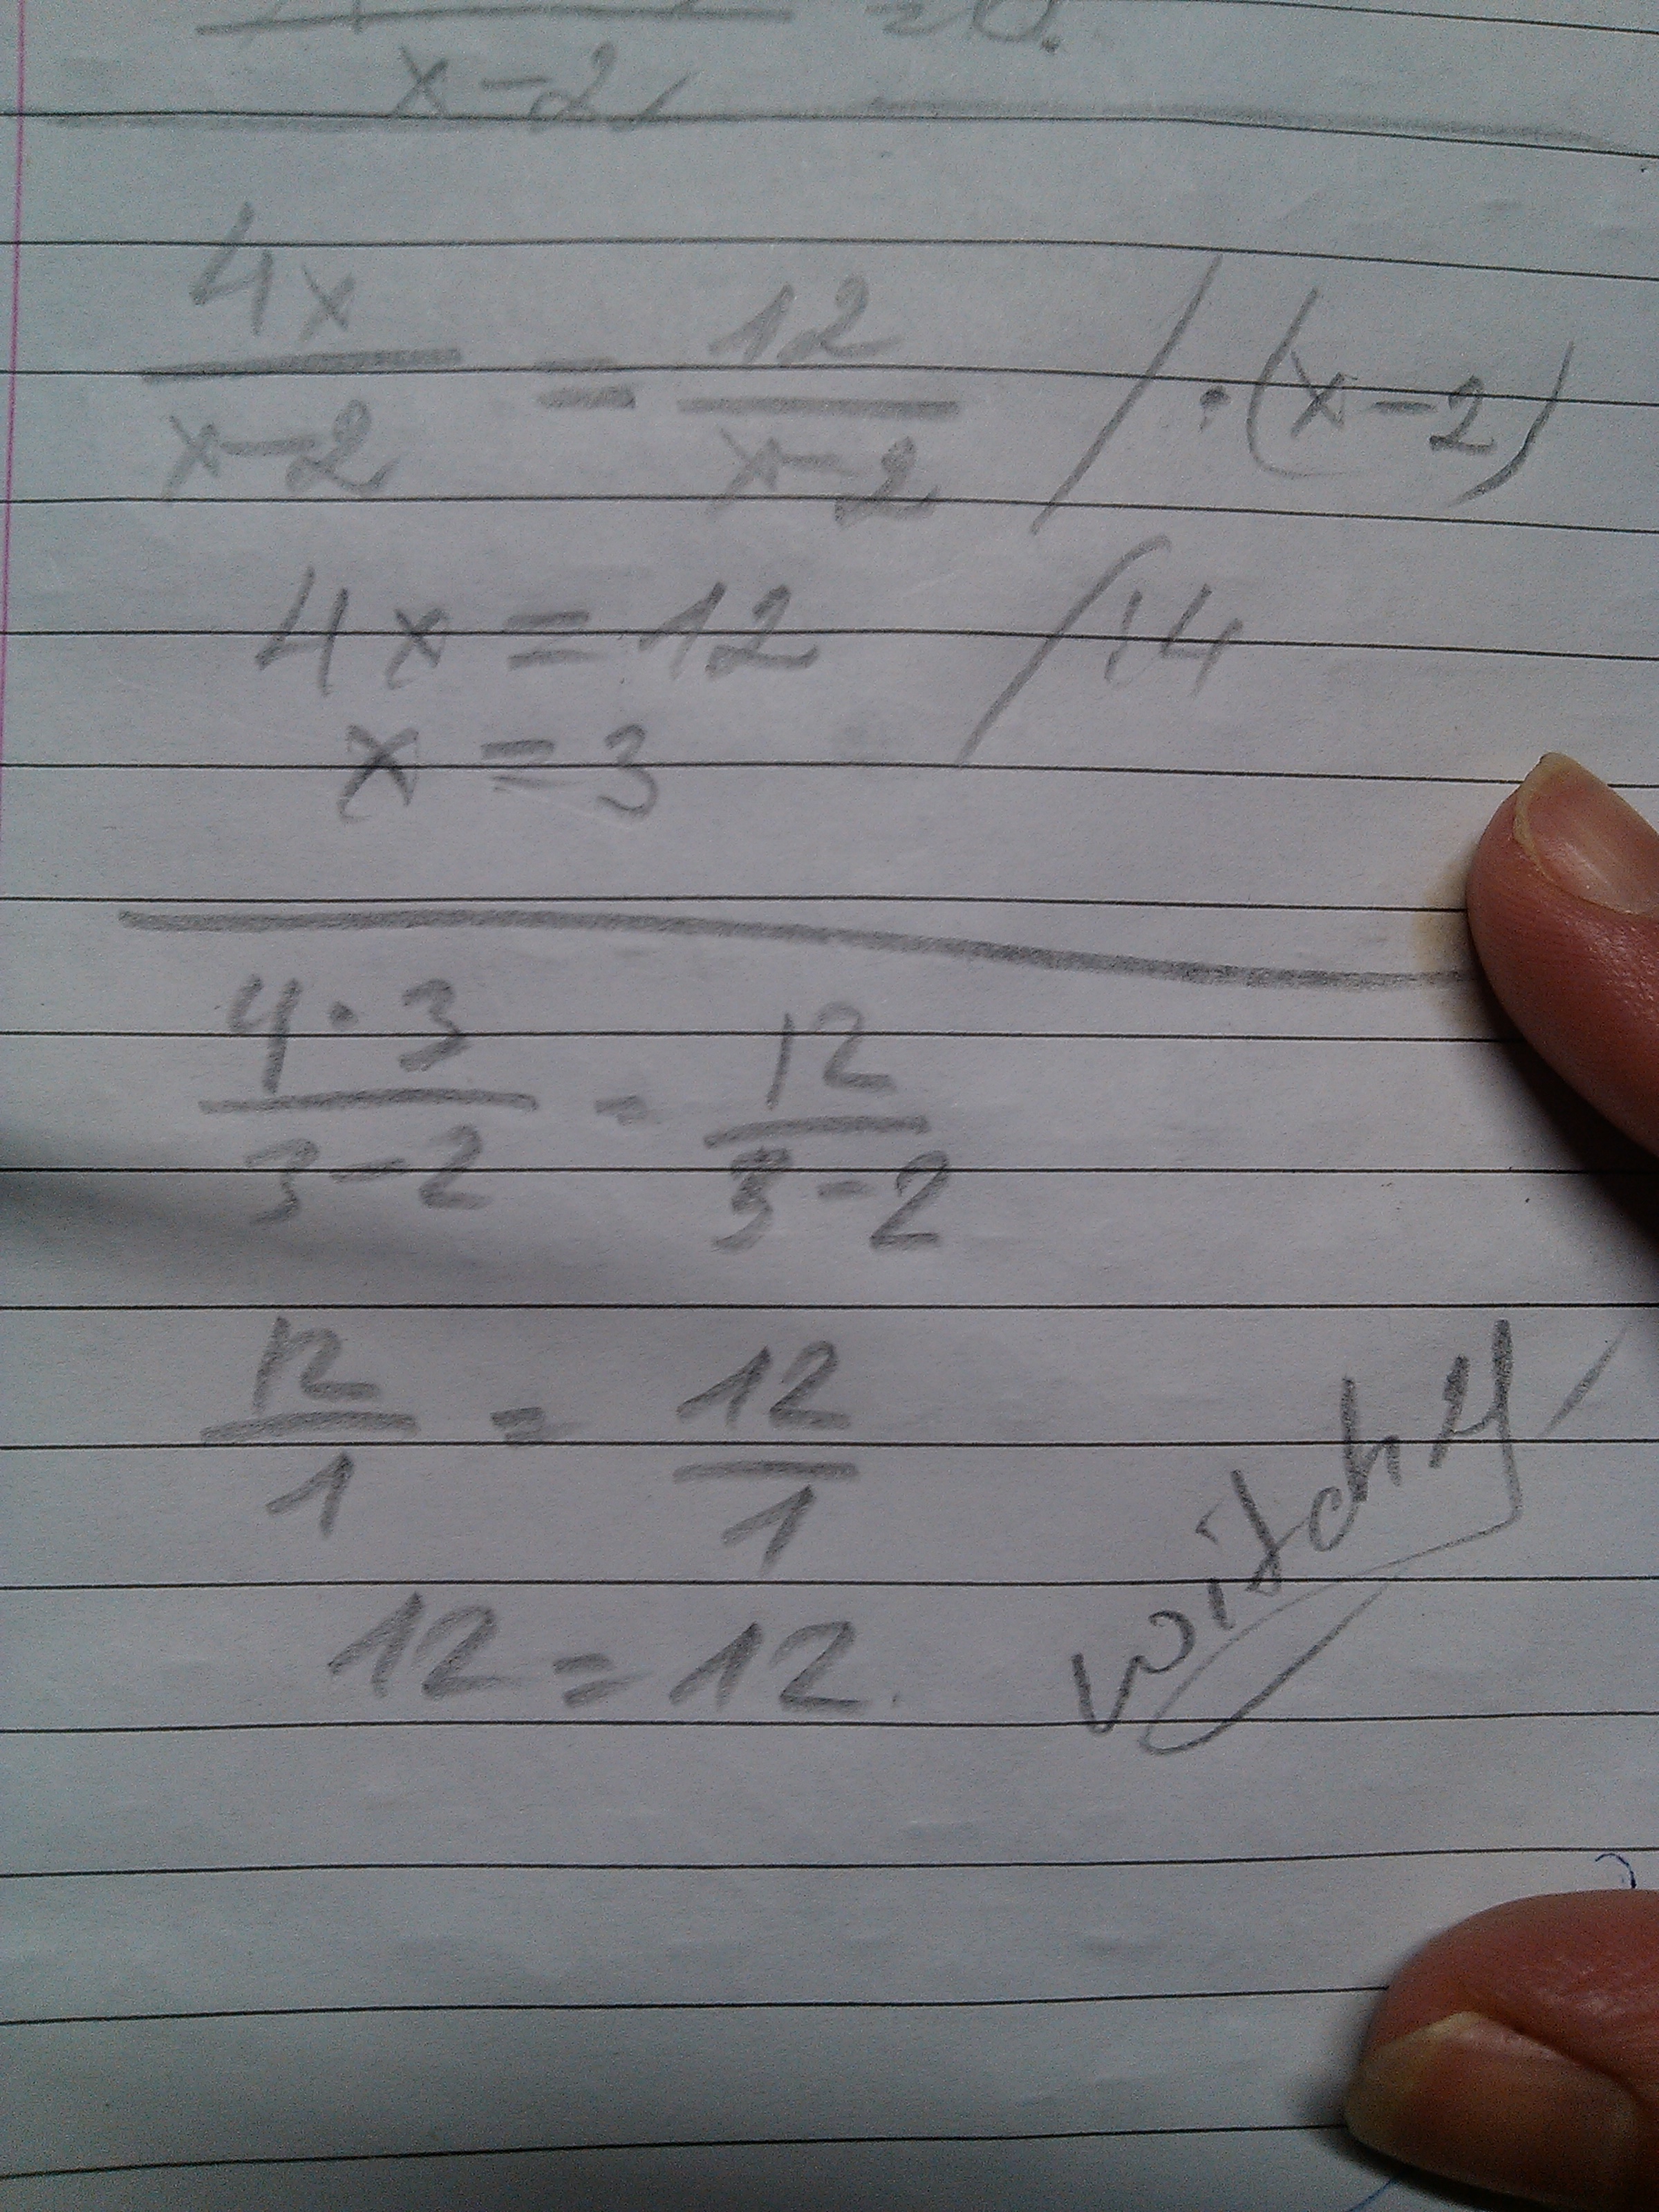 x-2
4x/x-2 = 12/x-2 / ·(x-2)
4x = 12 / :4
x = 3
4·3/3-2 = 12/3-2
12/1 = 12/1
12 = 12.